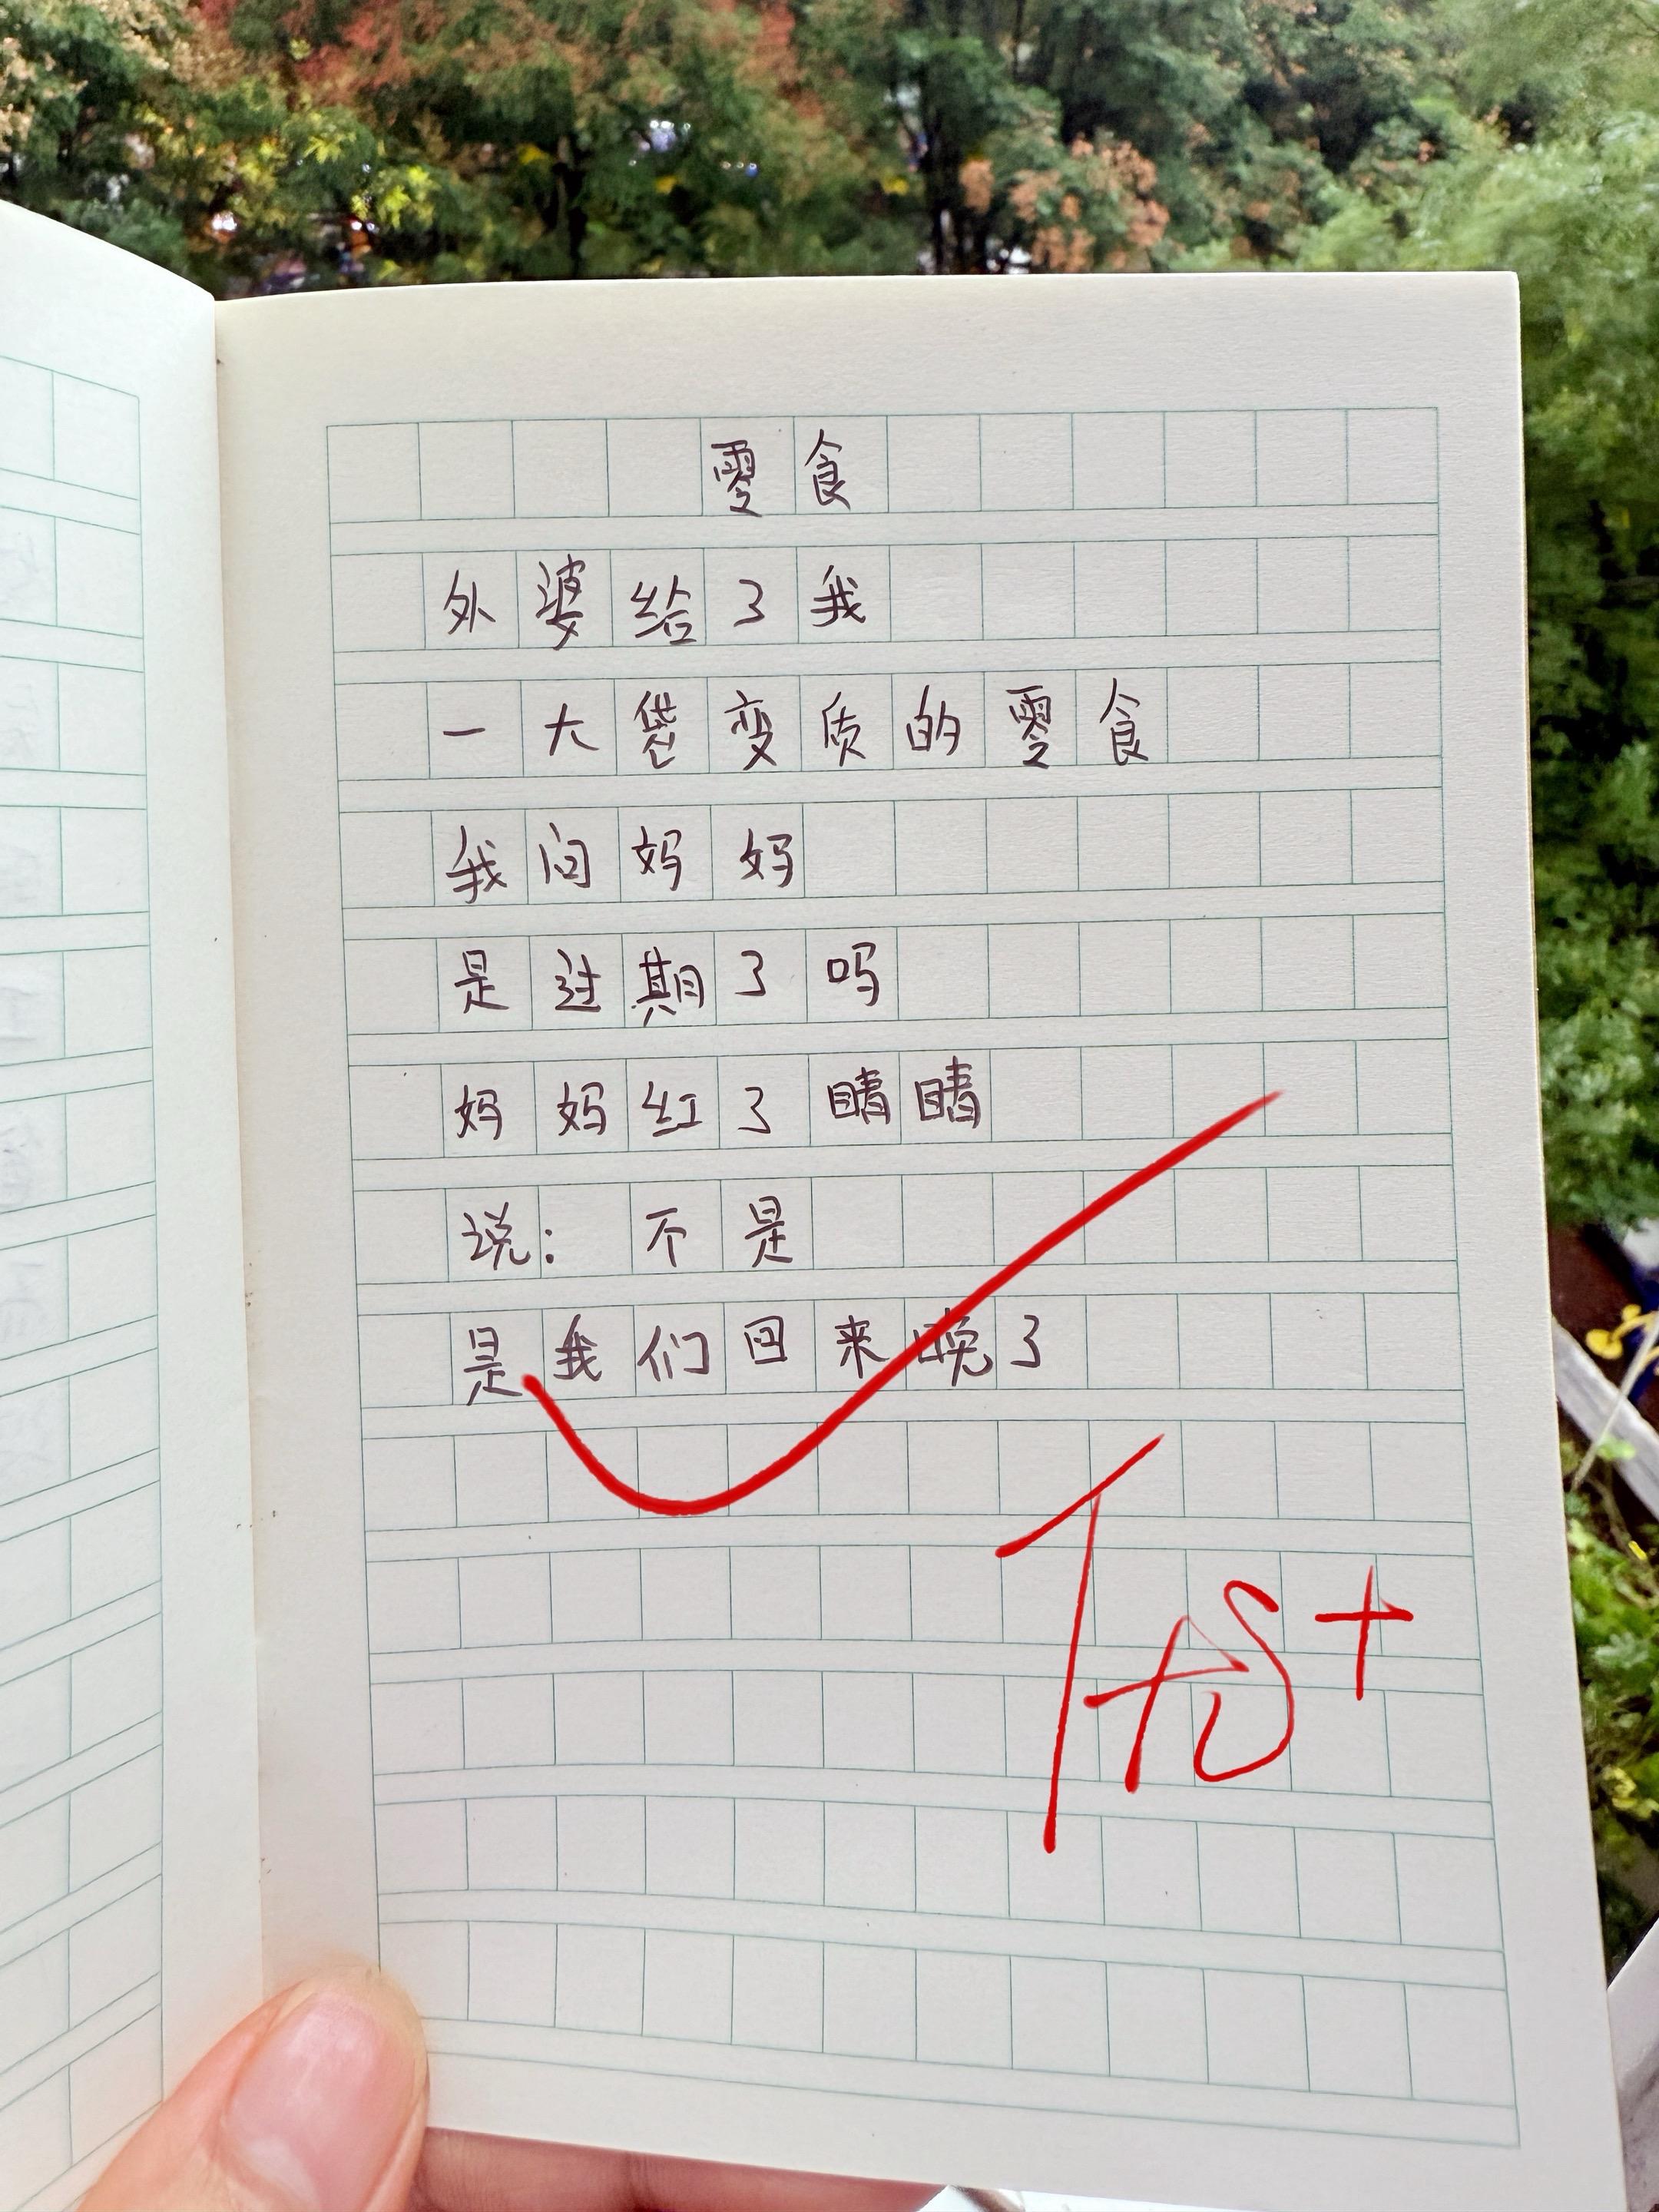 零食
外婆给了我
一大袋变质的零食
我问妈妈
是过期了吗
妈妈红了睛睛
说：不是
是我们回来晚了